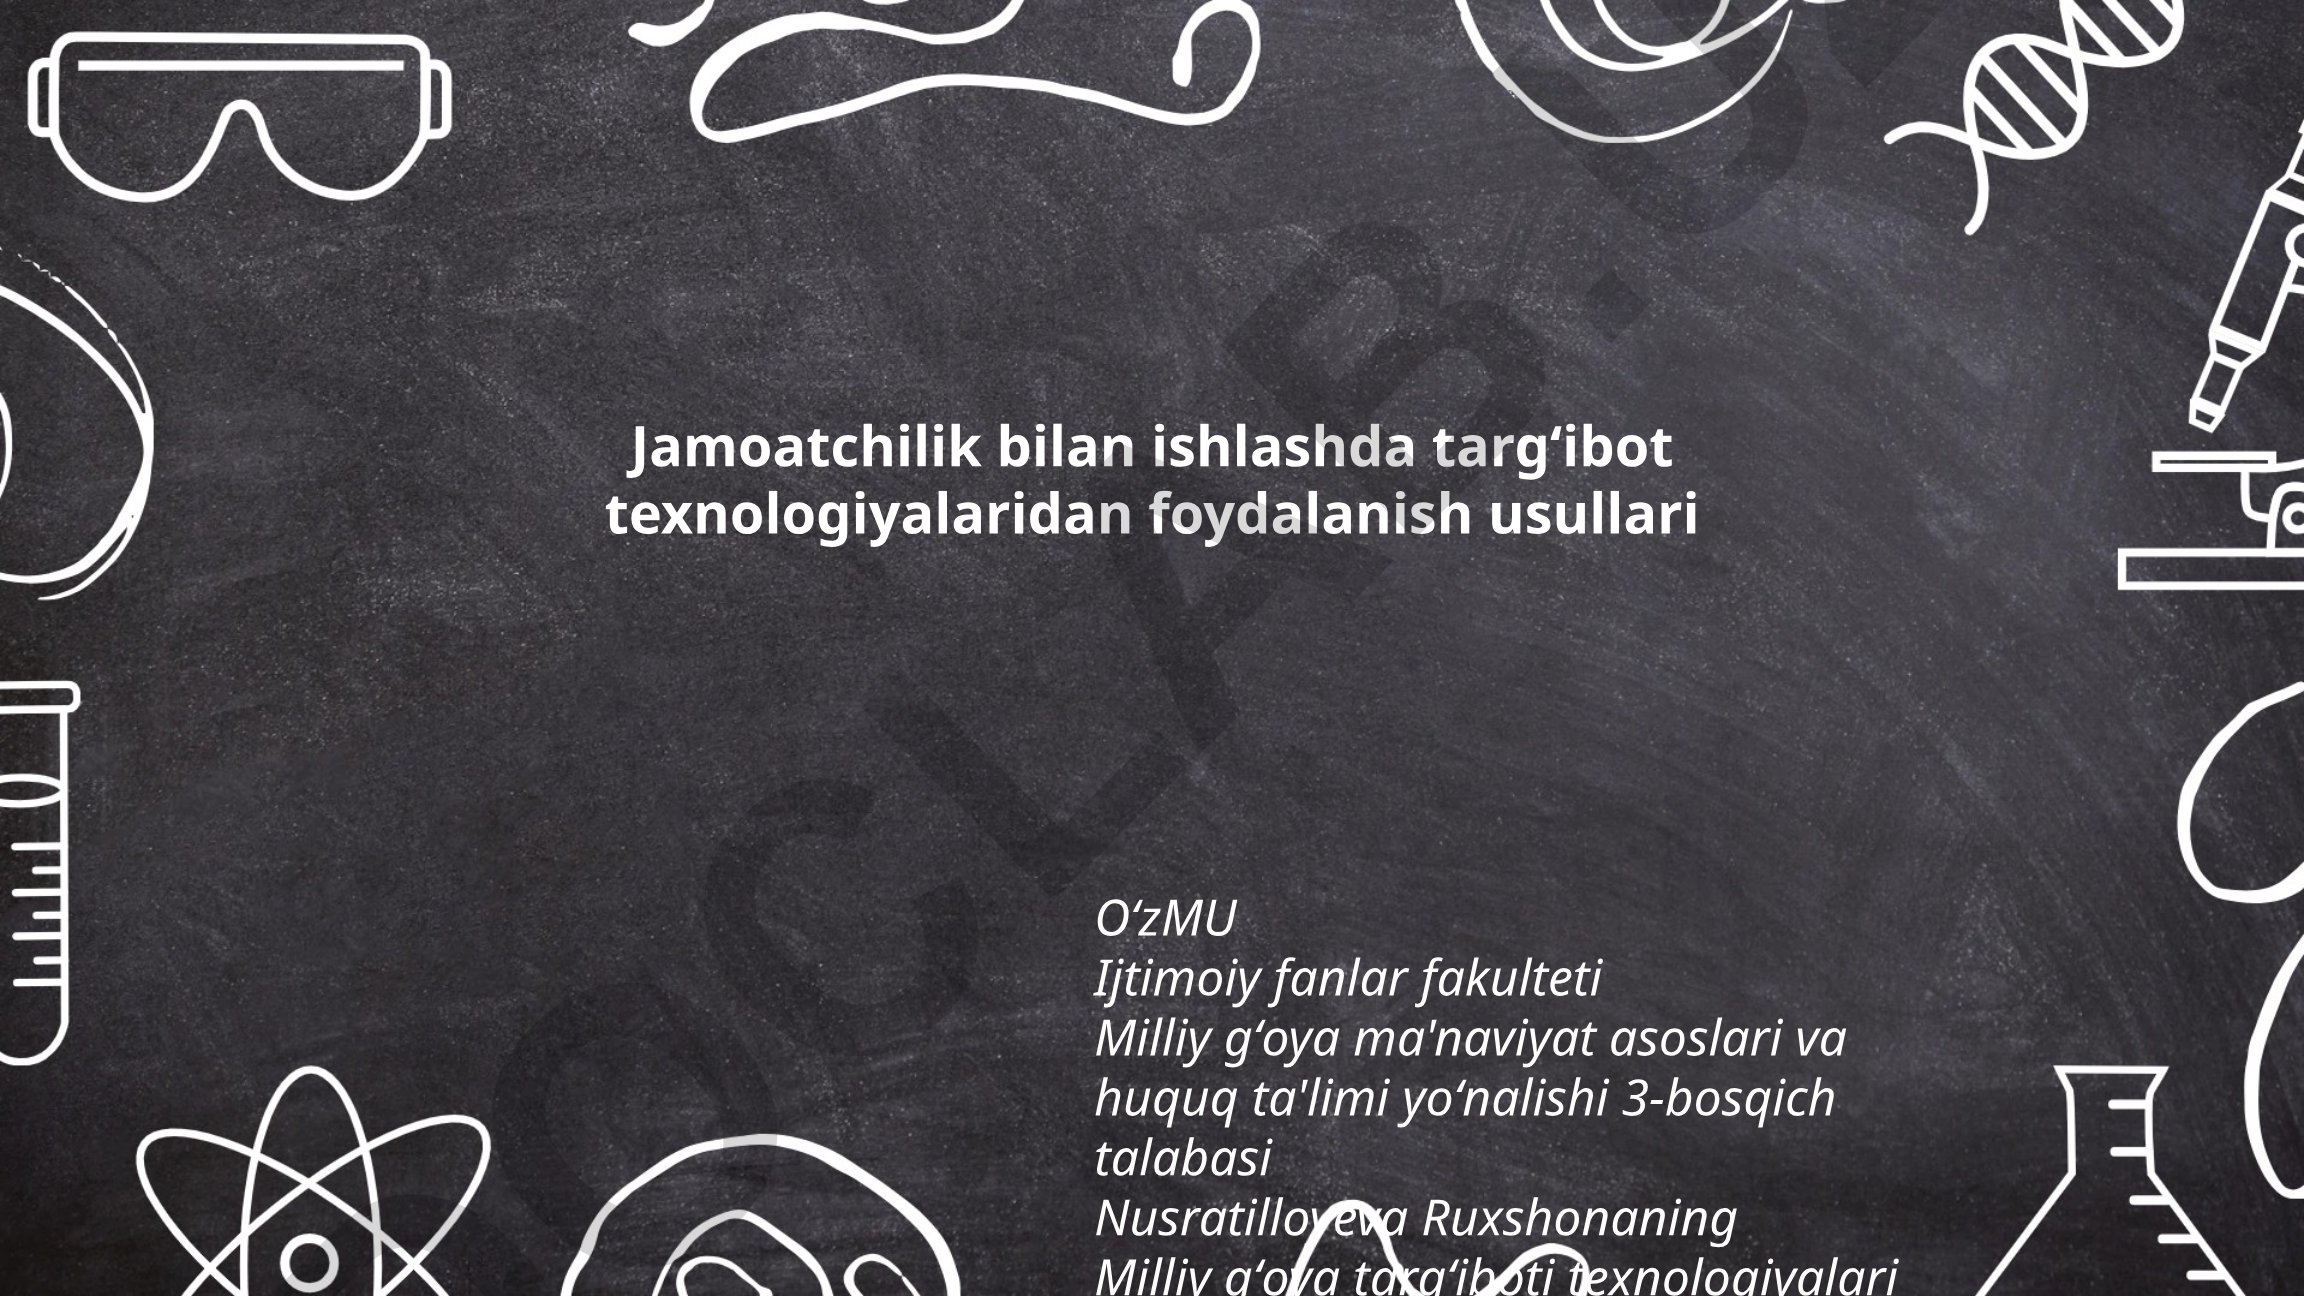 Jamoatchilik bilan ishlashda targ‘ibot
texnologiyalaridan foydalanish usullari
O‘zMU
Ijtimoiy fanlar fakulteti
Milliy g‘oya ma'naviyat asoslari va
huquq ta'limi yo‘nalishi 3-bosqich
talabasi
Nusratilloyeva Ruxshonaning
Milliy g‘oya targ‘iboti texnologiyalari